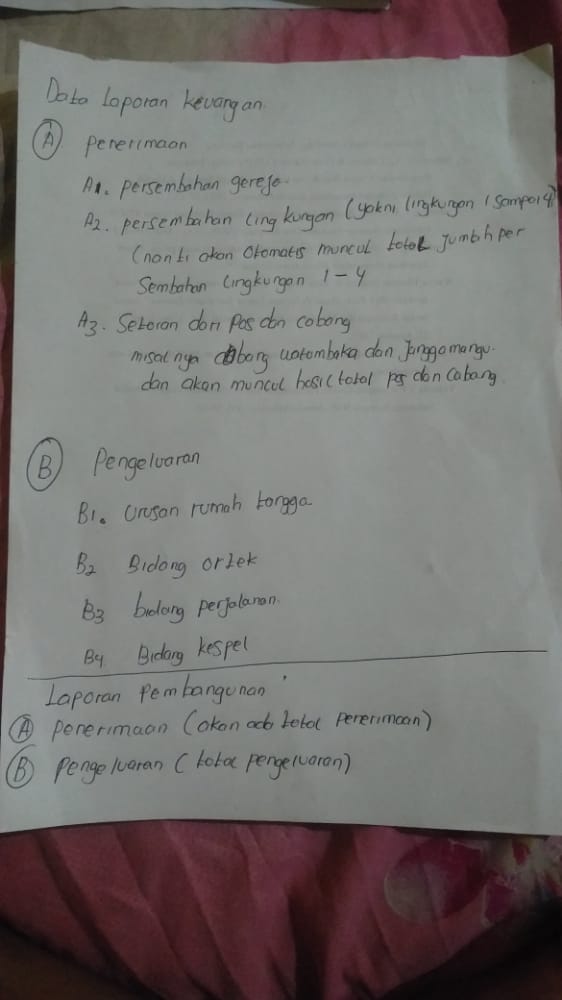 Data laporan keuangan.
A penerimaan
A1. persembahan gereja.
A2. persembahan lingkungan (yakni lingkungan 1 sampai 4)
(nanti akan otomatis muncul total jumlah per
Sembahan lingkungan 1-4
A3. Setoran dari pos dan cabang
misalnya cabang watombaka dan Janggamangu.
dan akan muncul hasil total pos dan cabang.
B Pengeluaran
B1. Urusan rumah tangga
B2 Bidang ortek
B3 bidang perjalanan.
B4 Bidang kespel
Laporan Pembangunan
A penerimaan (akan ada total penerimaan)
B pengeluaran (total pengeluaran)